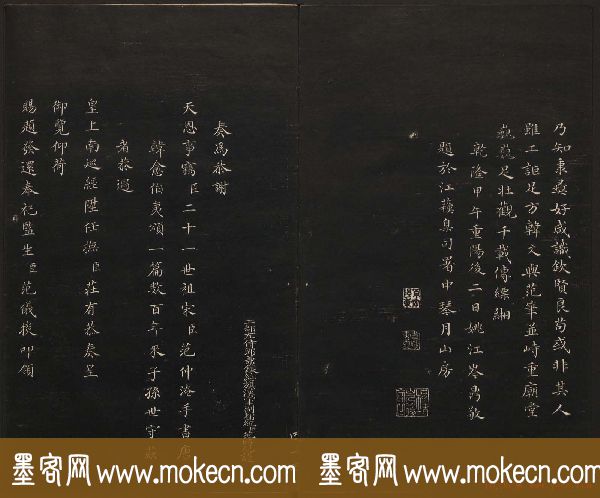 乃知秉彝好咸識欽賢良苟或非其人
雖工詎足方韓文與范筆並峙重廟堂
巍巍足壯觀千載傳縹緗
乾隆甲午重陽後二日姚江岑禺敬
題於江蘇臭司署中琴月山房
奏為恭謝
天恩事竊臣二十一世祖宋臣范仲淹手書唐
韓愈伯夷頌一篇數百年來子孫世守
茲恭遇
皇上南巡經陞任撫臣莊有恭奏呈
御覽仰荷
賜題發還奉祀監生臣范儀揆叩領
墨客网 www.mokecn.com 墨客网 www.mokecn.com